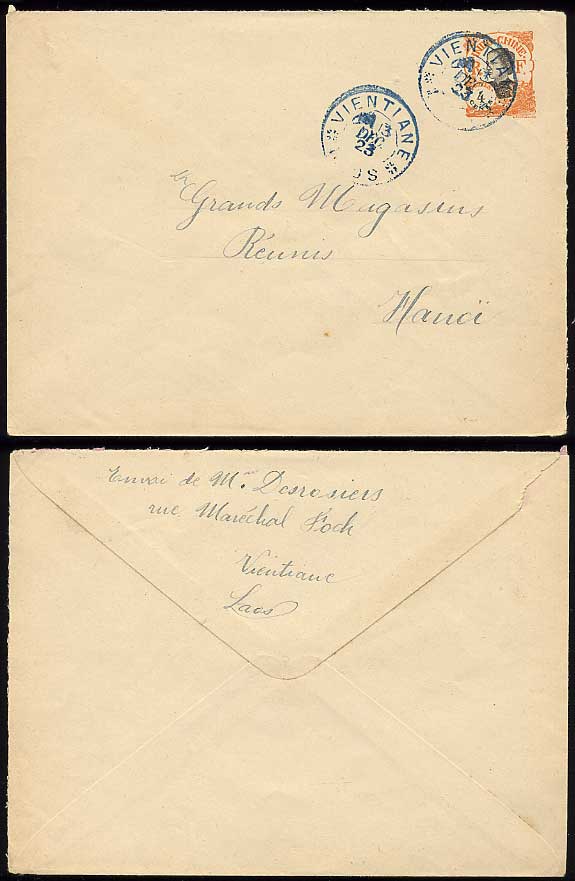 CHINE
VIENTIA
DEC
23
VIENTIANE
13
DEC
23
OS
Grands Magasins
Réunis
Hanoï
Envoi de M. Desrosiers
rue Maréchal Foch
Vientiane
Laos